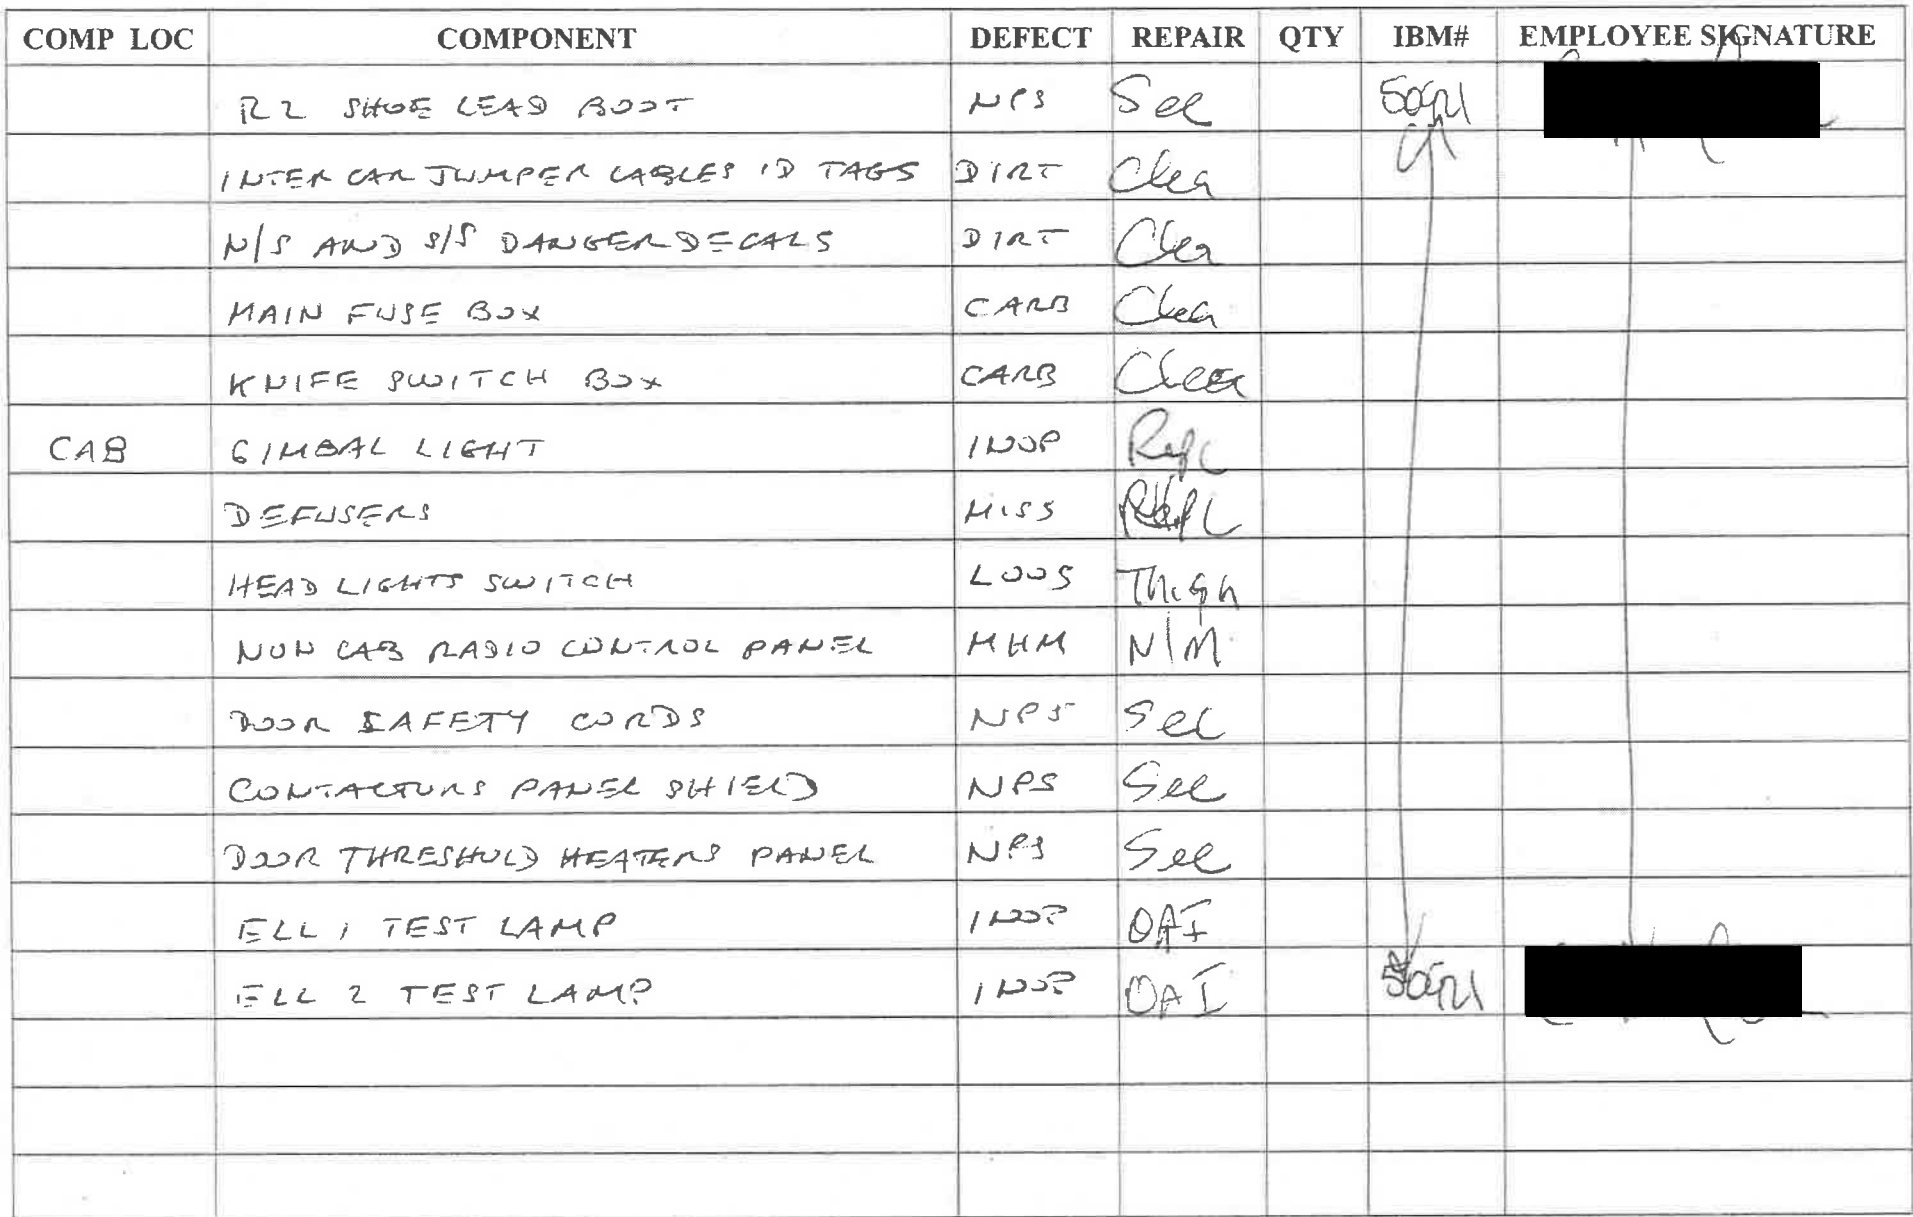 COMP LOC COMPONENT DEFECT REPAIR QTY IBM# EMPLOYEE SIGNATURE
R2 SHOE LEAD BOOT NPS Sec
INTER CAR JUMPER CABLES ID TAGS DIRT Clea
N/S AND S/S DANGER DECALS DIRT Clea
MAIN FUSE BOX CARB Clea
KNIFE SWITCH BOX CARB Clea
CAB GIMBAL LIGHT INOP Repl
DEFUSERS MISS Repl
HEAD LIGHTS SWITCH LOOS
NON CAB RADIO CONTROL PANEL MHM N/M
DOOR SAFETY CORDS NPS Sec
CONTACTORS PANEL SHIELD NPS Sec
DOOR THRESHOLD HEATERS PANEL NPS Sec
ELL 1 TEST LAMP INOP OAI
ELL 2 TEST LAMP INOP OAI